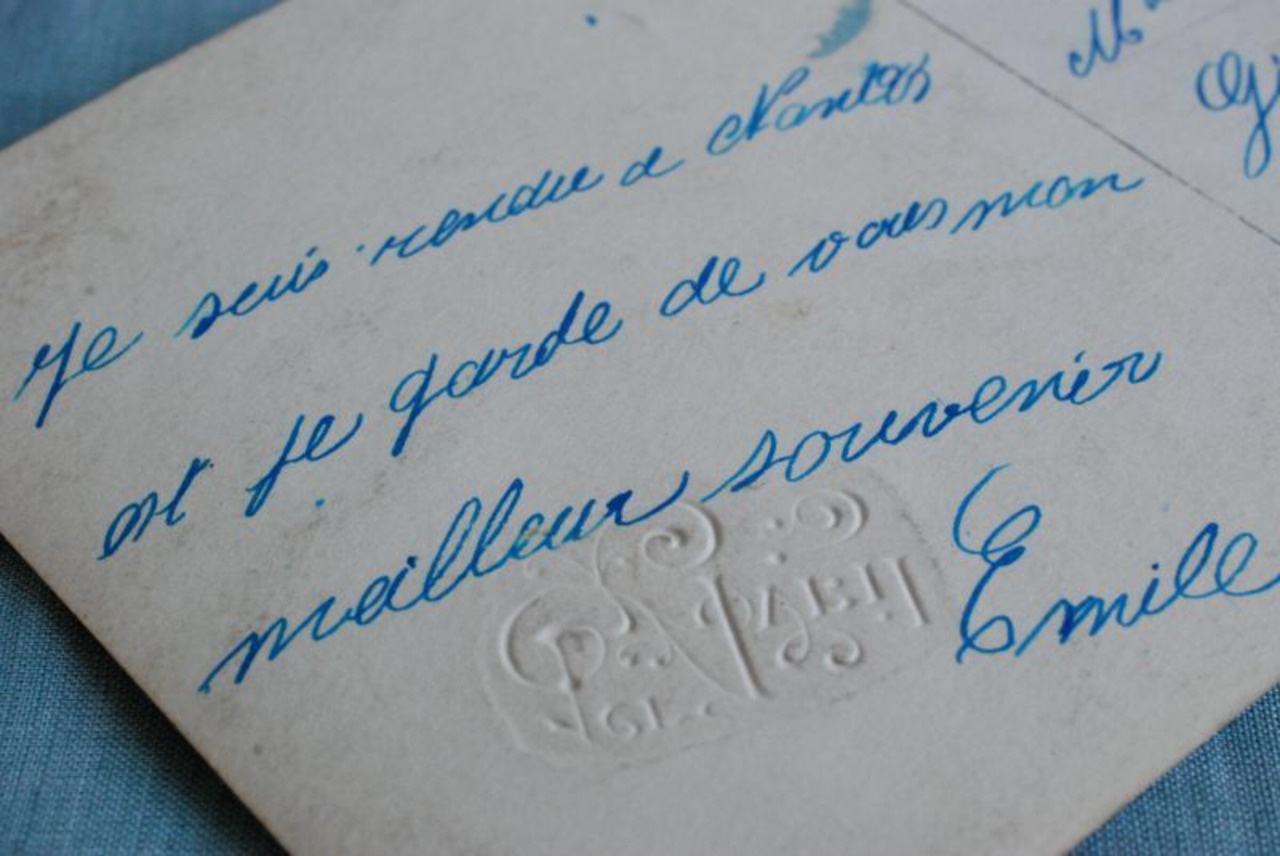 Je suis rendu a Nantes
et je garde de vous mon
meilleur souvenir
Emile